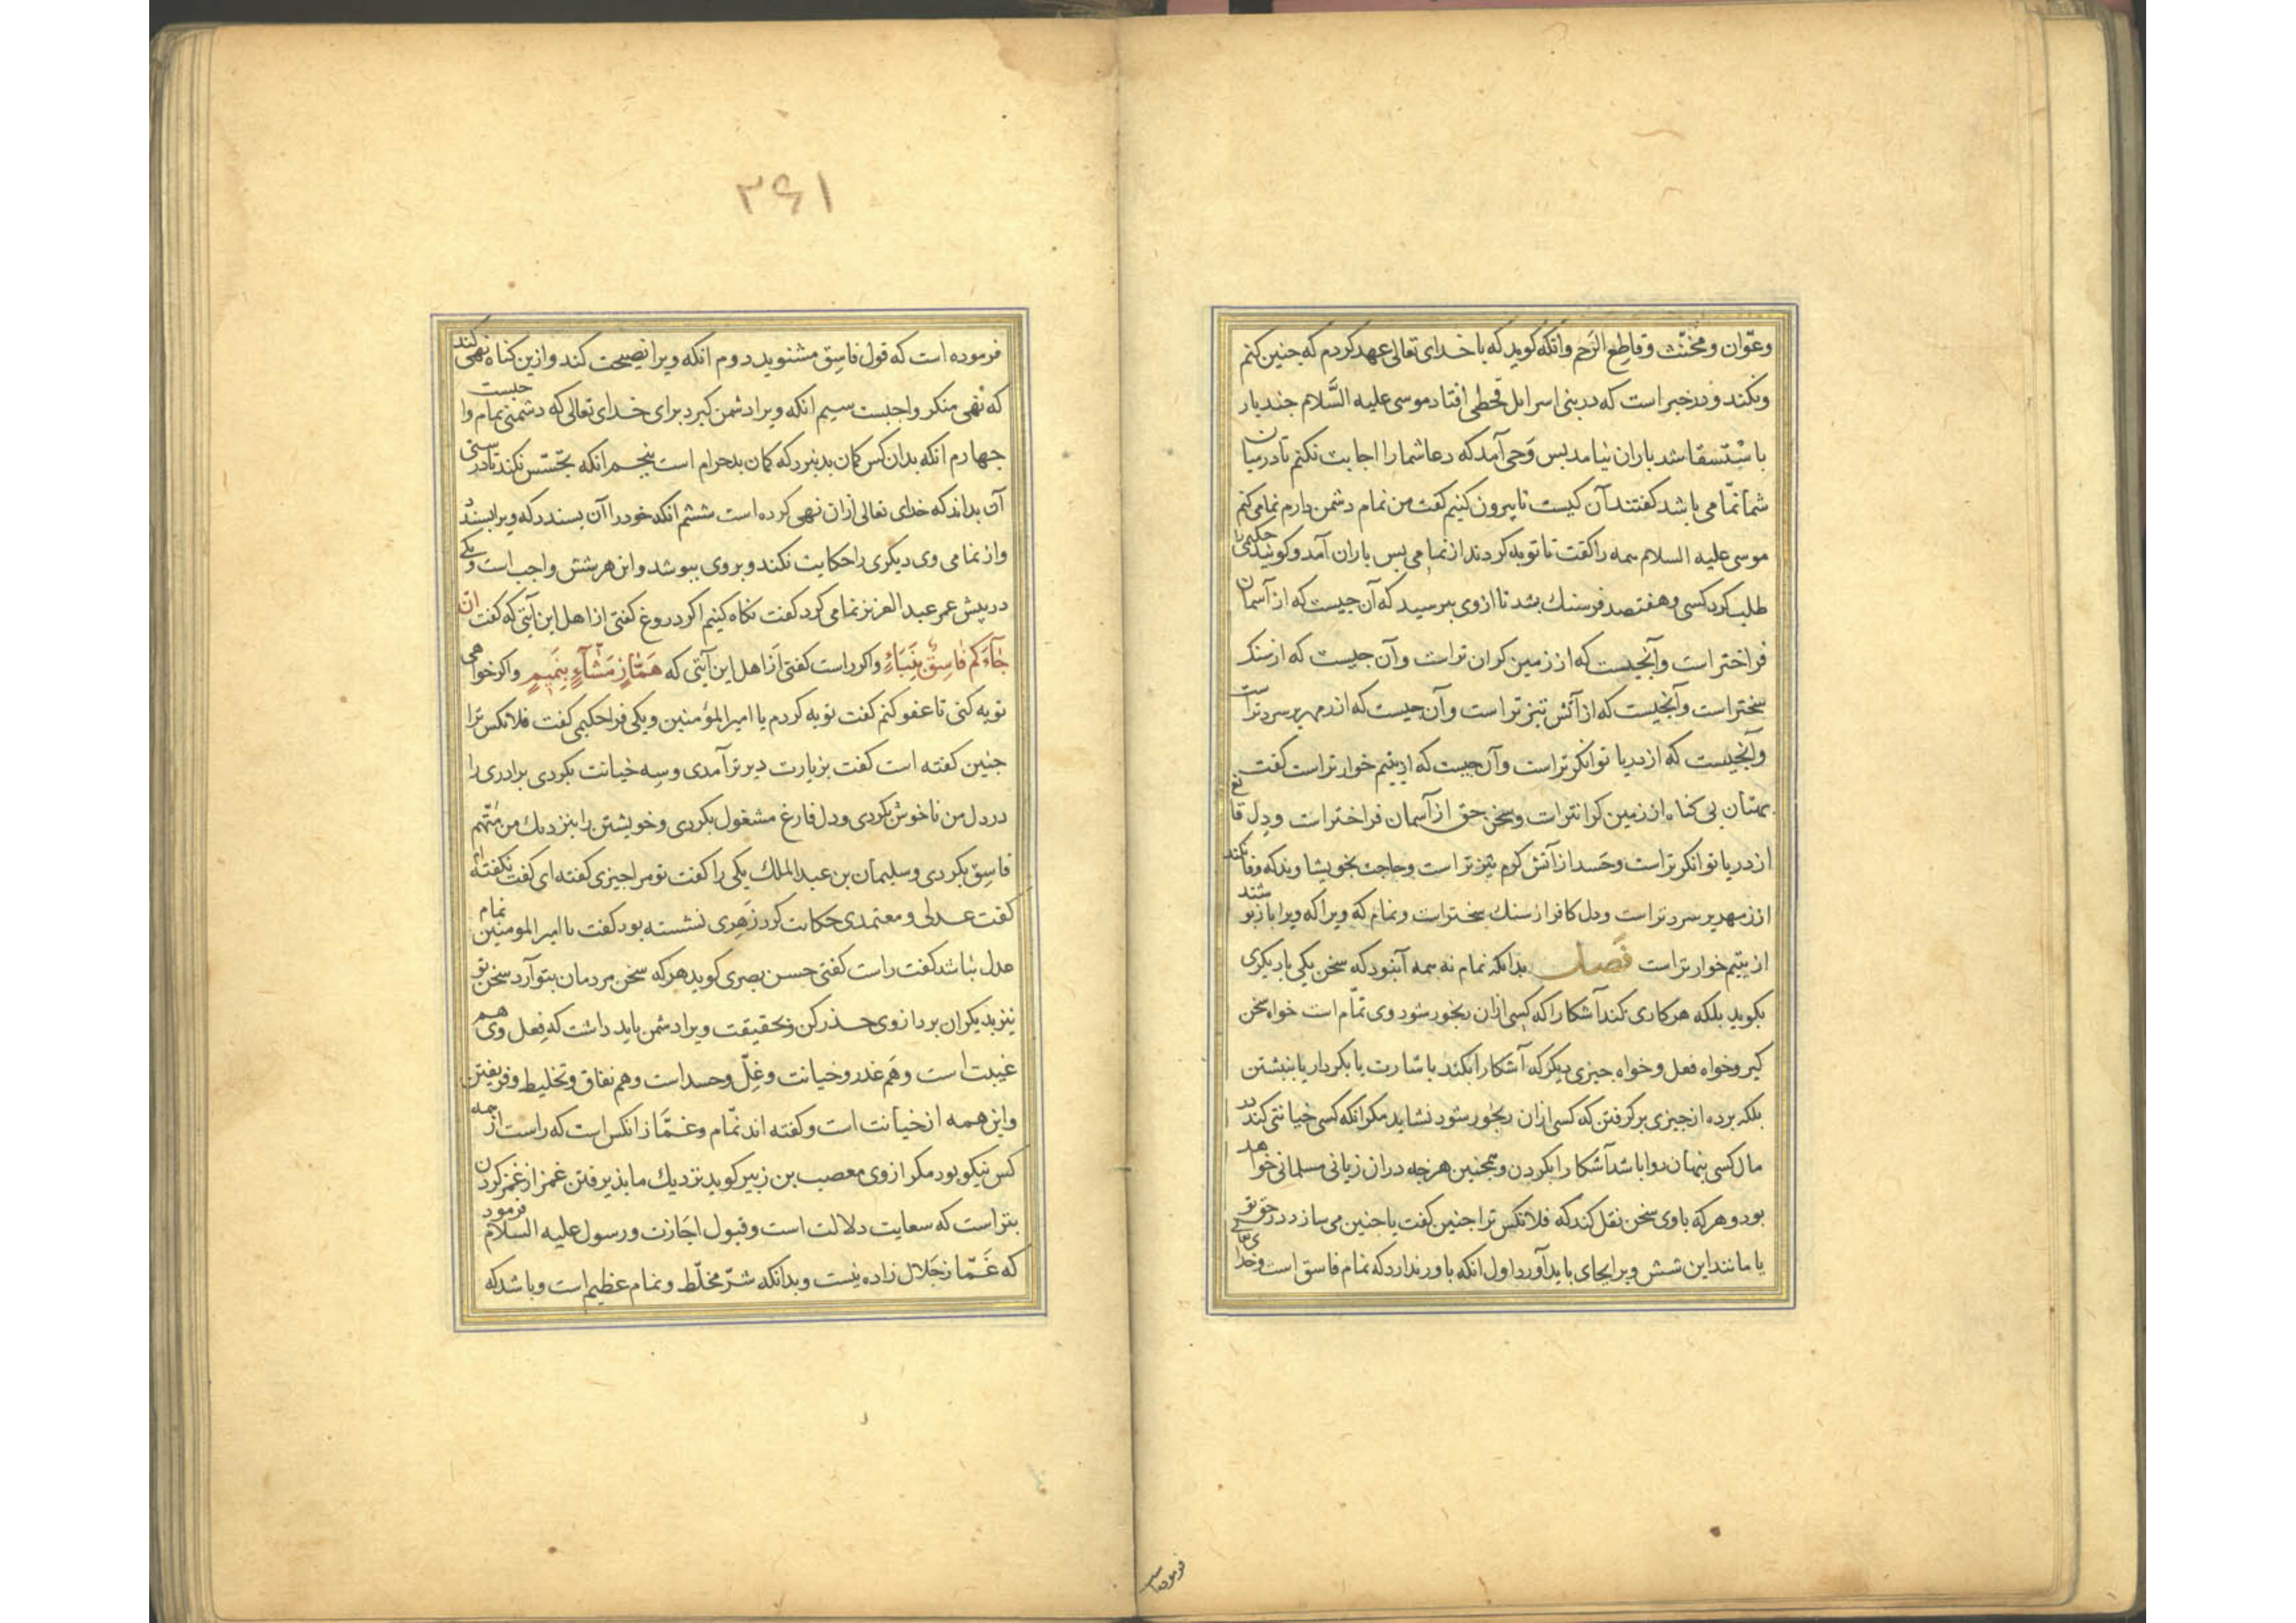 وعوّان ومخنّث وقاطع الرَحم وانکه کوید که با خدای تعالی عهد کردم که جنین کنم
ونکند ودر خبر است که در بنی اسرایل قحطی افتاد موسی علیه السَّلام جند بار
باسْتسقا شد باران نیامد بس وَحی آمد که دعا شما را اجابت نکنم تا در میان
شما نمّامی باشد کفتند آن کیست تا بیرون کنیم کفت من نمام دشمن دارم نمامی کنم
موسی علیه السلام همه را کفت تا توبه کردند از نمامی بس باران آمد وکویند حکیمی را
طلب کرد کسی وهفتصد فرسنك بشد تا از وی ببرسید که آن جیست که از آسمان
فراختر است وآنجیست که از زمین کران تر است وآن جیست که از سنك
سختر است وآنجیست که از آتش تیز تر است وآن جیست که از زمهریر سردتر است
وآنجیست که از دریا توانکر تر است وآن جیست که از یتیم خوار تر است کفت
بهتان بی کناه از زمین کرانتر است وسخن حق از آسمان فراختر است ودل قانع
از دریا توانکر تر است وحَسد از آتش کرم تیز تر است وحاجت بخویشاوند که وفا نکند
از زمهریر سردتر است ودل کافر از سنك سختر است ونمام که ویرا که ویرا باز نو شند
از یتیم خوار تر است فصل بدانکه نمام نه همه آنبود که سخن یکی با دیکری
بکوید بلکه هر کاری کند آشکارا که کسی ازان رنجور شود وی نمّام است خواه سخن
کیر وخواه فعل وخواه جیزی دیکر که آشکارا بکند باشارت یا بکردار یا بنبشتن
بلکه برده از جیزی برکرفتن که کسی ازان رنجور شود نشاید مکر انکه کسی خیانتی کند در
مال کسی بنهان روا باشد آشکارا بکردن وهمجنین هرجه دران زیانی مسلمانی خواهد
بود وهر که با وی سخن نقل کند که فلانکس ترا جنین کفت یا جنین می سازد در حق تو
یا مانند این شش ویرا بجای باید آورد اول انکه باور ندارد که نمام فاسق است وخدای تعالی
فرموده است
۳۶۱
فرموده است که قول فاسِق مشنوید دوم انکه ویرا نصیحت کند وازین کناه نهی کند
که نهی منکر واجبست سیم انکه ویرا دشمن کیرد برای خدای تعالی که دشمنی نمام واجبست
جهارم انکه بدان کس کمان بد نبرد که کمان بد حرام است بنجم انکه تجسّس نکند تا درستی
آن بداند که خدای تعالی ازان نهی کرده است ششم انکه خود را آن بسندد که ویرا بسندد
واز نمامی وی دیکری را حکایت نکند وبروی ببوشد واین هر شش واجب است ویکی
در پیش عمر عبد العزیز نمامی کرد کفت نکاه کنیم اکر دروغ کفتی از اهل این آیتی که کفت ان
جآءکم فاسِقٌ بِنَبَاءٍ واکر راست کفتی از اهل این آیتی که هَمَّازٍ مَشَّآءٍ بِنَمیمٍ واکر خواهی
توبه کنی تا عفو کنم کفت توبه کردم یا امیر المؤمنین ویکی فرا حکیمی کفت فلانکس ترا
جنین کفته است کفت بزیارت دیر تر آمدی وسِه خیانت بکردی برادری را
در دل من ناخوش بکردی ودل فارغ مشغول بکردی وخویشتن را بنزدیك من متّهم
فاسِق بکردی وسلیمان بن عبد الملك یکی را کفت تو مرا جیزی کفته ای کفت نکفته ام
کفت عدلی ومعتمدی حکایت کرد زهری نشسته بود کفت یا امیر المومنین نمام
عدل نباشد کفت راست کفتی حسن بصری کوید هر که سخن مردمان بتو آرد سخن تو
نیز بدیکران برد از وی حذر کن وبحقیقت ویرا دشمن باید داشت که فِعل وی هم
غیبت است وهَم غدر وخیانت وغِلّ وحسد است وهم نفاق وتخلیط وفریفتن
واین همه از خیانت است وکفته اند نمّام وغمَّاز انکس است که راست از همه
کس نیکو بود مکر از وی معصب بن زبیر کوید نزدیك ما بذیرفتن غمز از غمز کردن
بتر است که سعایت دلالت است وقبول اجَازت ورسول علیه السلام فرمود
که غَمّاز حَلال زاده نیست وبدانکه شرّ مخلّط ونمام عظیم است وباشد که